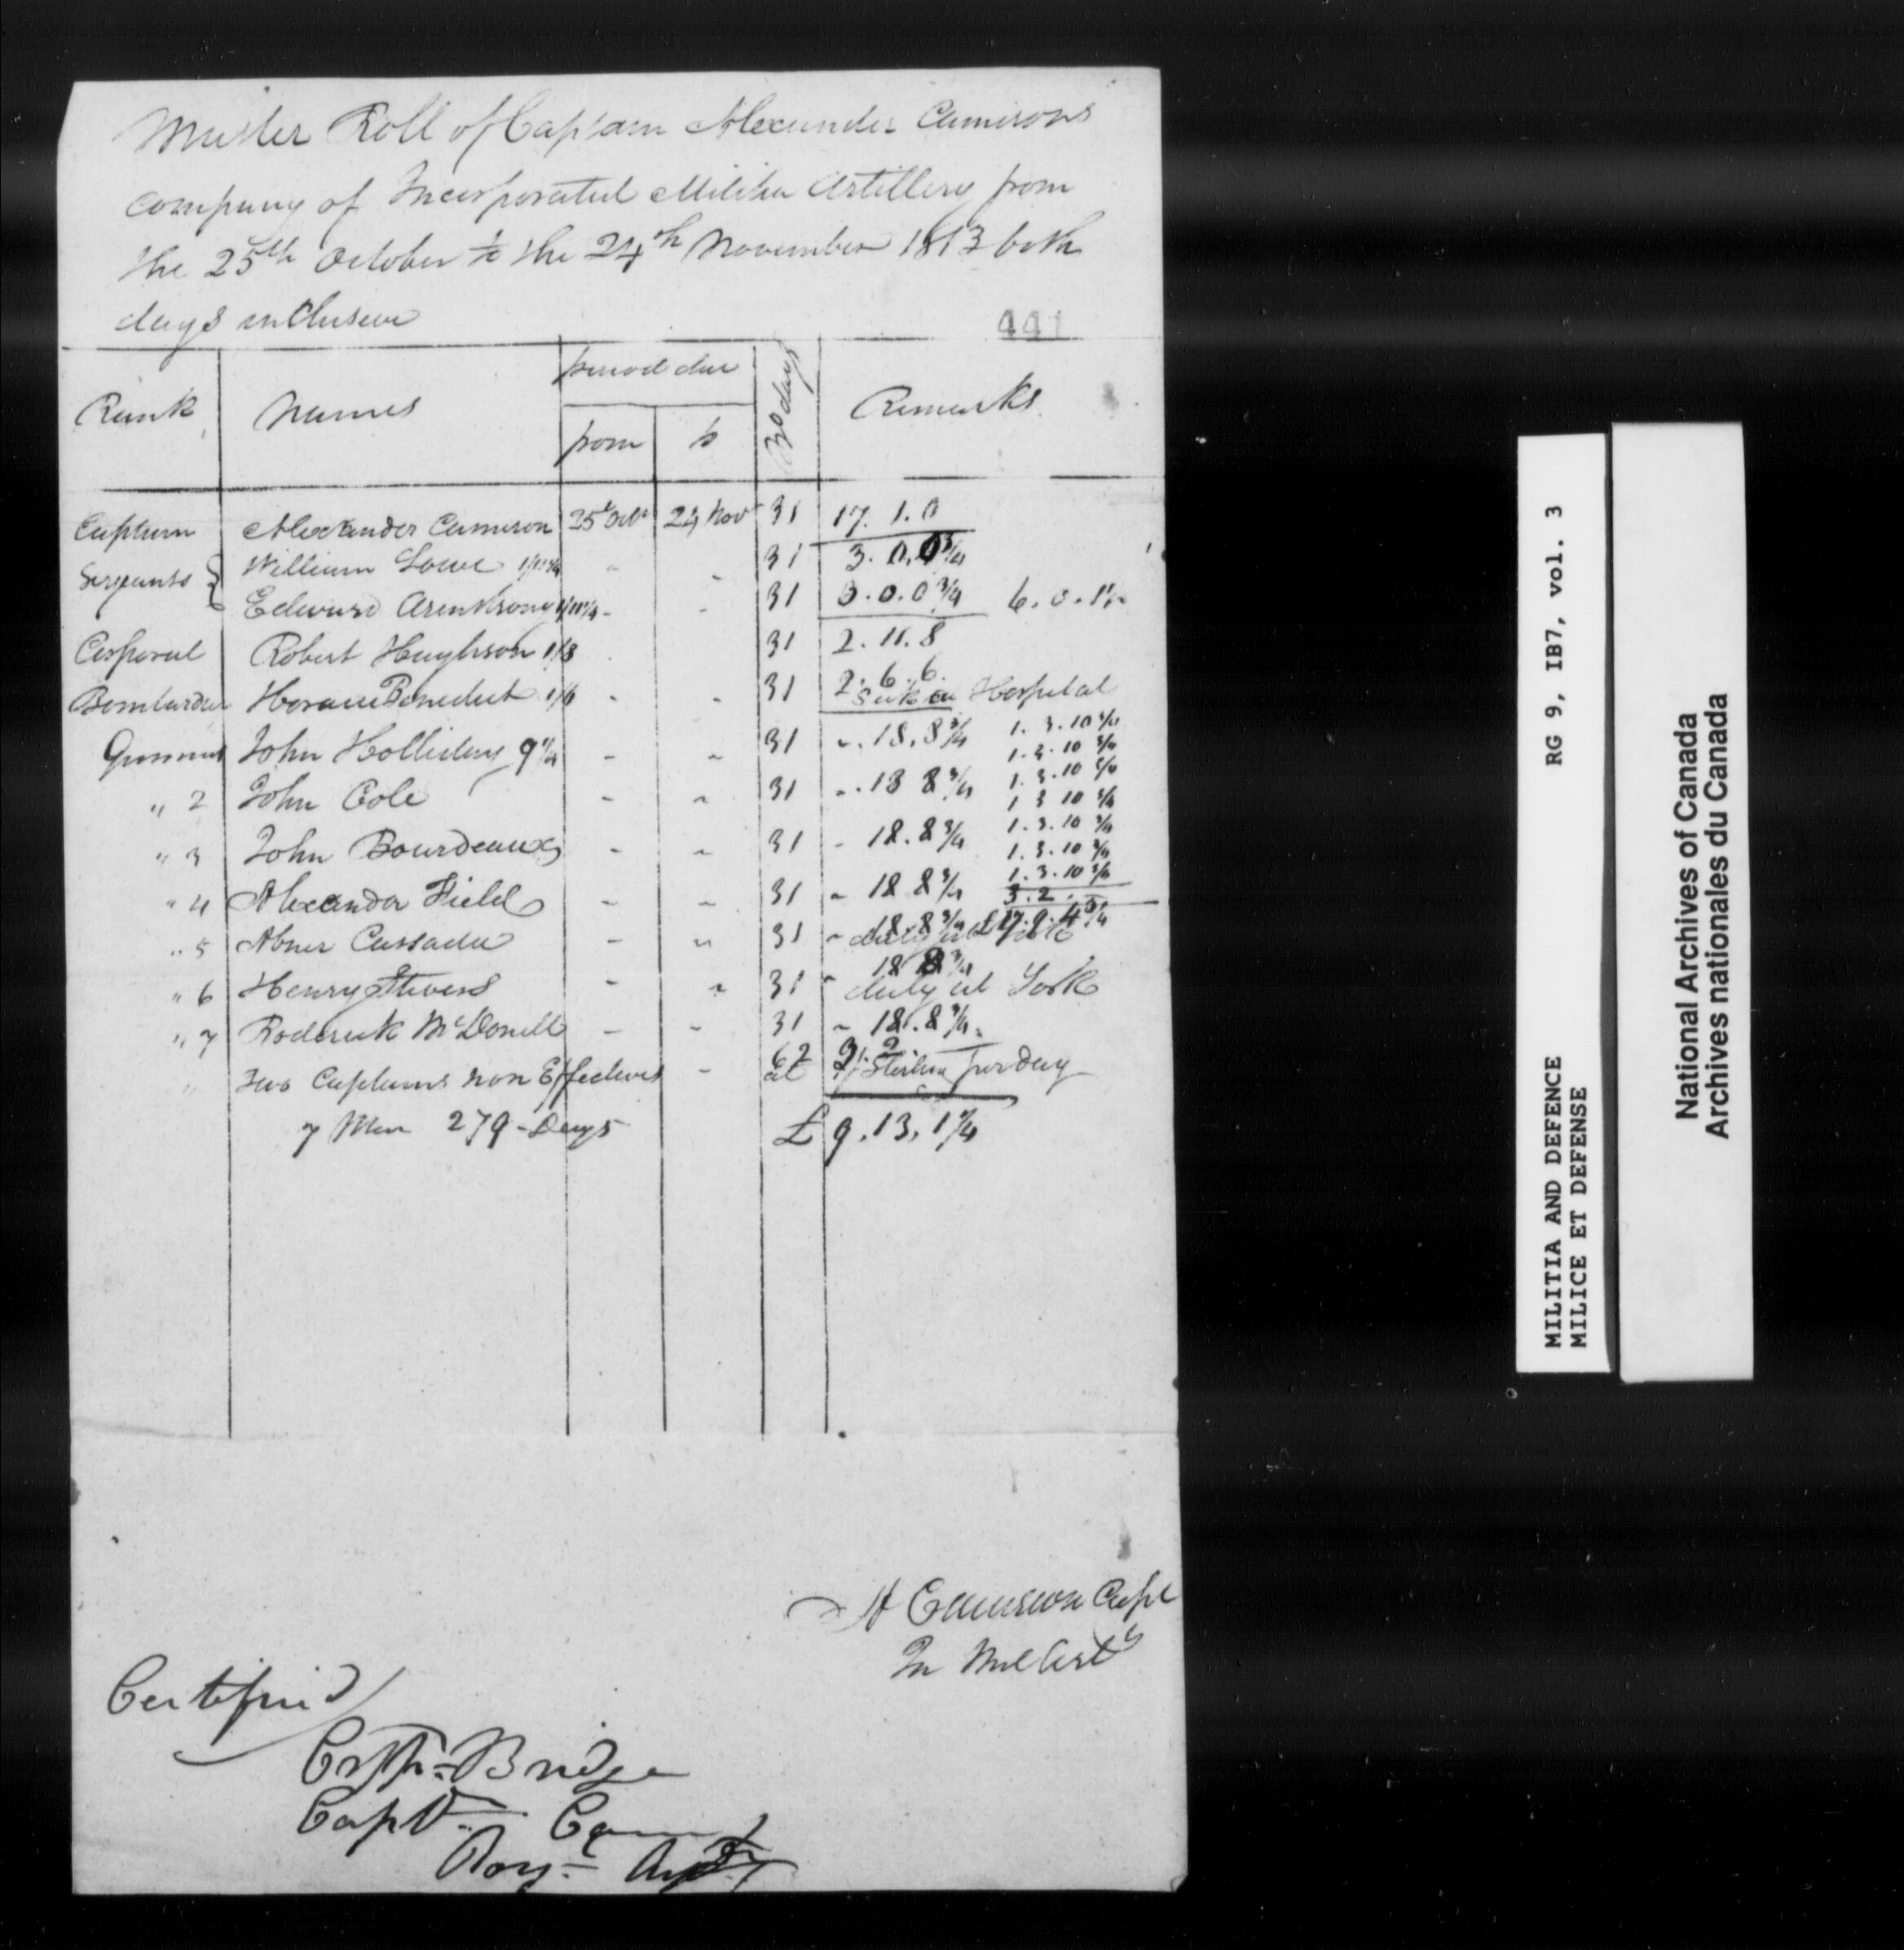 Muster Roll of Captain Alexander Camerons
company of Incorporated Militia Artillery from
the 25th October to the 24th November 1813 both
days inclusive
441
Rank Names period due No days Remarks
from to
Captain Alexander Cameron 25th Octr 24 Novr 31 17.1.0
Serjeants { William Lowe 1/11¼ " " 31 3.0.0¾
Edward Armstrong 1/11¼ - - 31 3.0.0¾ 6.0.1½
Corporal Robert Hughson 1/8 31 2.11.8
Bombardier Horace Benedict 1/6 - - 31 2.6.6.
Sick in Hospital
Gunners John Holliday 9¼ - - 31 -.18.8¾ 1.3.10¾
1.3.10¾
" 2 John Cole - - 31 -.18 8¾ 1.3.10¾
1 3 10¾
" 3 John Bourdeaux - - 31 - 18.8¾ 1.3.10¾
1.3.10¾
" 4 Alexander Field - - 31 - 18 8¾ 1.3.10¾
3.2.
" 5 Abner Cassada - " 31 - 18.8¾
duty at York
" 6 Henry Stevens - " 31 - 18 8¾
duty at York
" 7 Roderick McDonell - - 31 - 18.8¾
" Two Captains non Effectives - 62 3.2.
at Sterling per day
7 Men 279 - Days £ 9.13.1¼
A Cameron Capt
In Mil Arty
Certified
Bridge
Captn
Roy= Arty
MILITIA AND DEFENCE RG 9, IB7, vol. 3
MILICE ET DEFENSE
National Archives of Canada
Archives nationales du Canada